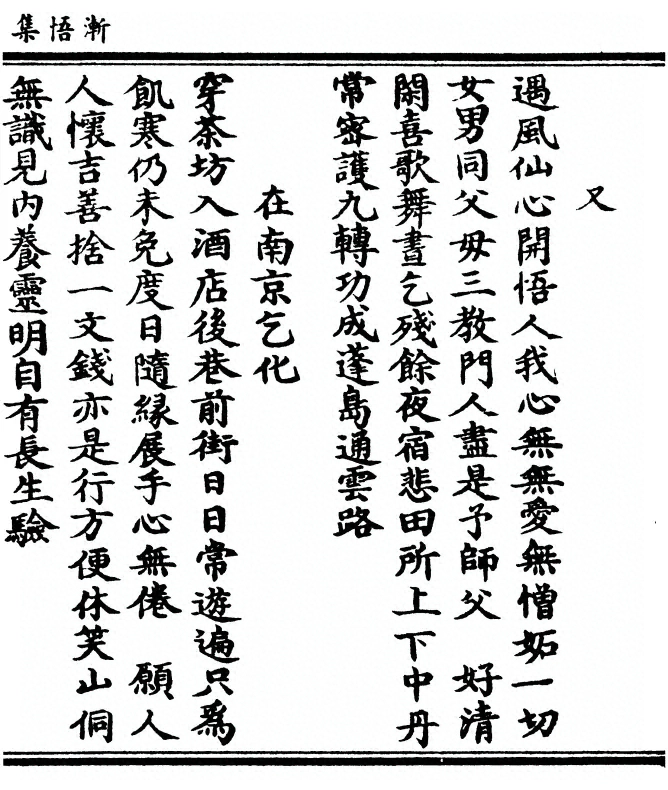 漸悟集
又
遇風仙心開悟人我心無無愛無憎妬一切
女男同父毋三教門人盡是予師父　好清
閑喜歌舞晝乞殘餘夜宿悲田所上下中丹
常宻護九轉功成蓬島通雲路
在南京乞化
穿茶坊入酒店後巷前街日日常遊遍只爲
飢寒仍未免度日隨緣展手心無倦　願人
人懷吉善捨一文錢亦是行方便休笑山侗
無識見内養靈明自有長生驗